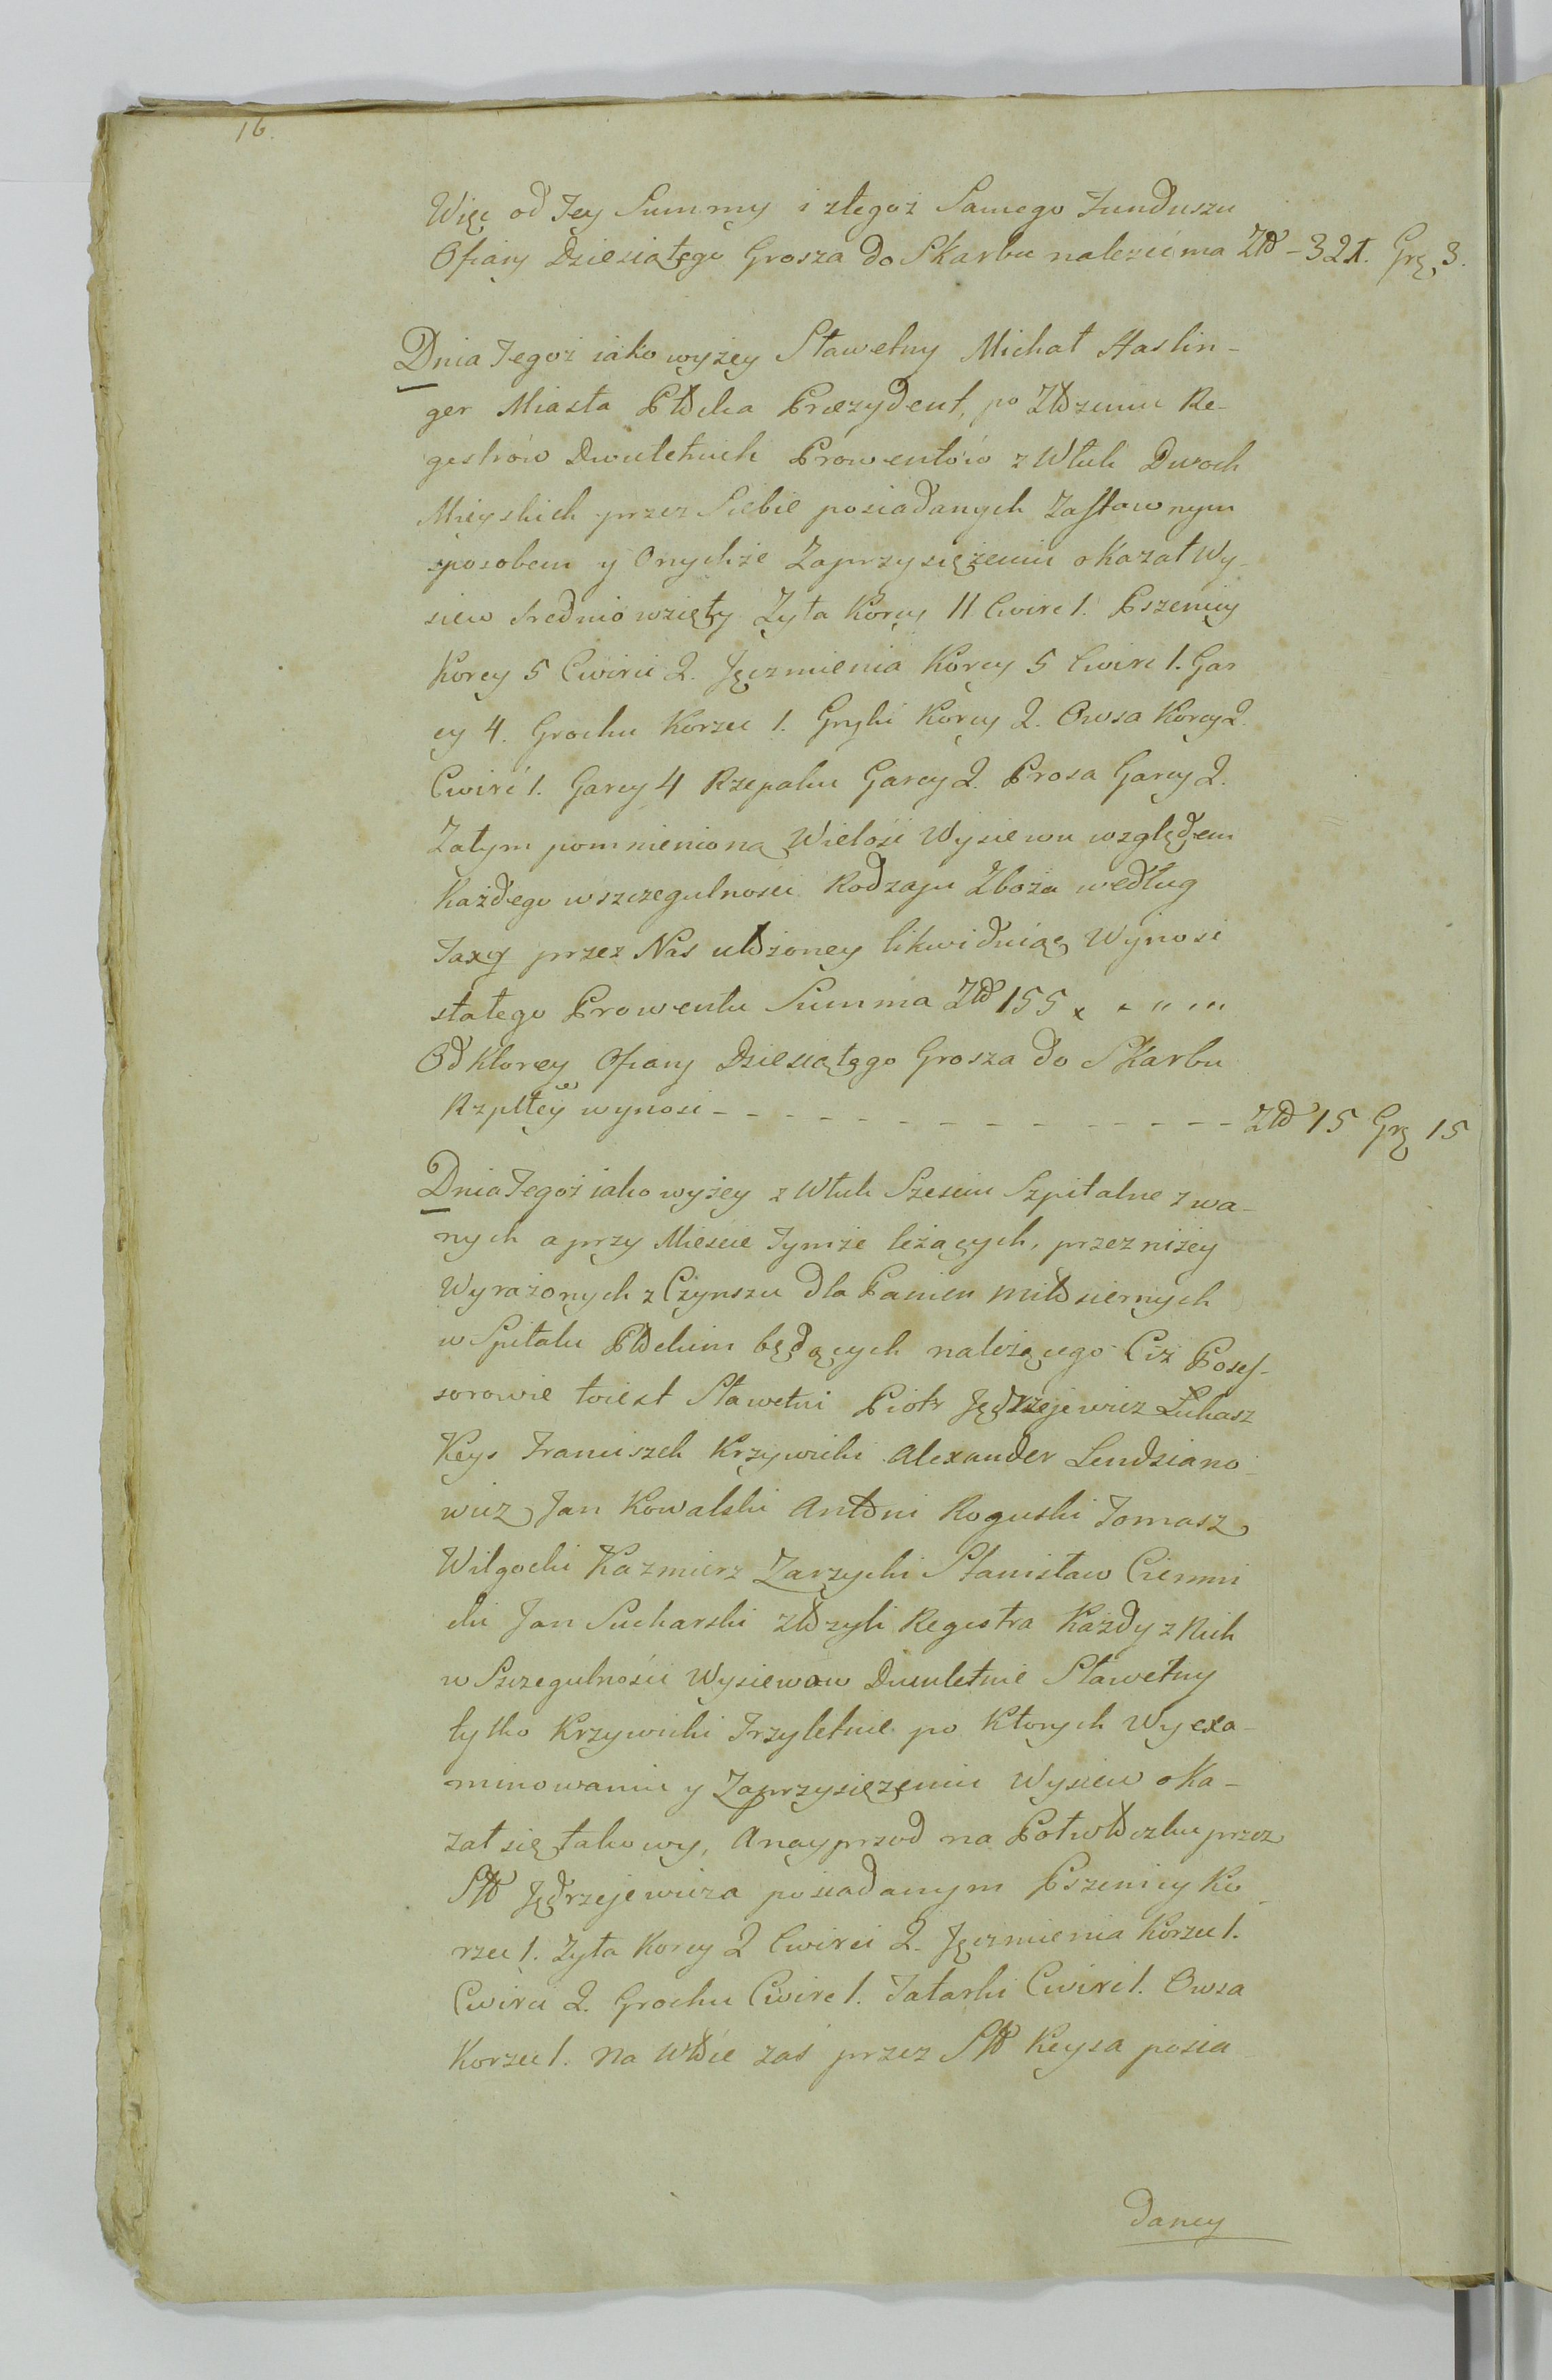 16.
Więc od Tey Summy i ztegoż Samego Funduszu
Ofiary Dziesiątego Grosza do Skarbu należeć ma Złł – 321. Grę 3.
Dnia Tegoż iako wyżey Sławetny Michał Haslin-
ger Miasta Płocka Prezydent, po Złożeniu Re-
gestrów Dwuletnich Prowentów z Włuk Dwoch
Mieyskich przez Siebie posiadanych Zastawnym
sposobem y Onychże Zaprzysiężeniu okazał Wy-
siew średnio wzięty Zyta Korcy 11 Cwirć 1. Pszenicy
Korcy 5 Cwirci 2. Jęczmienia Korcy 5 Cwirc 1. Gar
cy 4. Grochu Korzec 1. Gryki Korcy 2. Owsa Korcy 2.
Cwirć 1. Garcy 4 Rzepaku Garcy 2. Prosa Garcy 2.
Zatym pomnieniona Wielość Wysiewu względem
Każdego wszczegulności Rodzaju Zboża według
Taxy przez Nas ułożoney likwiduiąc Wynosi
stałego Prowentu Summa Złł 155 „ „ „ „
Od Ktorey Ofiary Dziesiątego Grosza do Skarbu
Rzpltey wynosi – – – – – – – – – – – – – – – Złł 15 Grę 15
Dnia Tegoż iako wyżey z Włuk Sześciu Szpitalne zwa-
nych a przy Mieście Tymże leżących, przez niżey
Wyrażonych z Czynszu dla Panien miłosiernych
w Spitalu Płockim będących należącego Ciż Poses-
sorowie toiest Sławetni Piotr Jędrzejewicz Łukasz
Keys Franciszek Krzywicki Alexander Lendziano-
wicz Jan Kowalski Antoni Roguski Tomasz
Wilgocki Kazmierz Zarzycki Stanisław Ciemni
cki Jan Sucharski złożyli Regestra Każdy z Nich
w Szczegulności Wysiewow Dwuletnie Sławetny
tylko Krzywicki Trzyletnie po Ktorych Wyexa-
minowaniu y Zaprzysiężeniu Wysiew oka-
zał się takowy, Anayprzod na Połwłoczku przez
Sł Jędrzejewicza posiadanym Pszenicy Ko-
rzec 1. Zyta Korcy 2 Cwirci 2. Jęczmienia Korzec 1.
Cwirci 2. Grochu Cwirc 1. Tatarki Cwirc 1. Owsa
Korzec 1. Na Włoce zaś przez Sł Keysa posia
daney